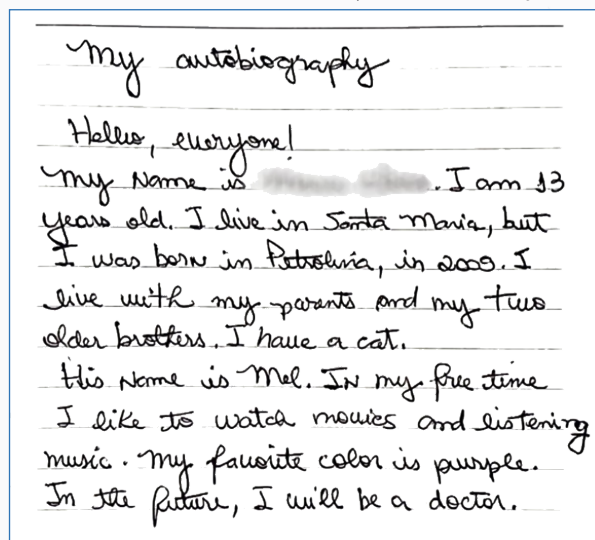 My autobiography
Hello, everyone!
My Name is . I am 13
years old. I live in Santa Maria, but
I was born in Petrolina, in 2009. I
live with my parents and my two
older brothers. I have a cat.
His Name is Mel. IN my free time
I like to watch movies and listening
music. My favorite color is purple.
In the future, I will be a doctor.